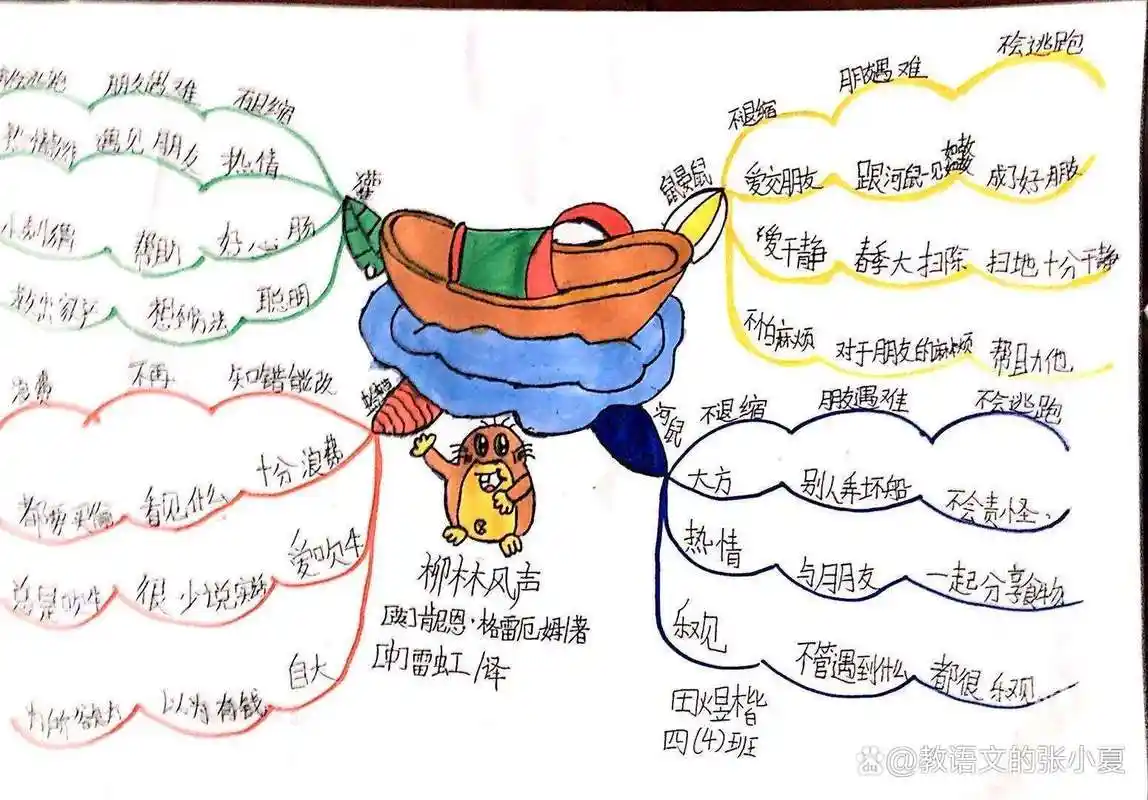 獾
朋友遇难
不退缩
遇见朋友
热情
帮助
好心肠
救出家产
想到方法
聪明
鼹鼠
不退缩
朋友遇难
不会逃跑
爱交朋友
跟河鼠一见如故
成了好朋友
爱干净
春季大扫除
扫地十分干静
不怕麻烦
对于朋友的麻烦
帮且力他
浪费
不再
知错能改
十分浪费
看见什么
都要买俩
爱吹牛
很少说实话
总是吹牛
自大
以为有钱
河鼠
不退缩
朋友遇难
不会逃跑
大方
别人弄坏船
不会责怪、
热情
与朋友
一起分享食物
乐观
不管遇到什么
都很乐观
柳林风声
[英]肯尼思·格雷厄姆/著
[中]雷虹/译
田煜楷
四(4)班
@教语文的张小夏